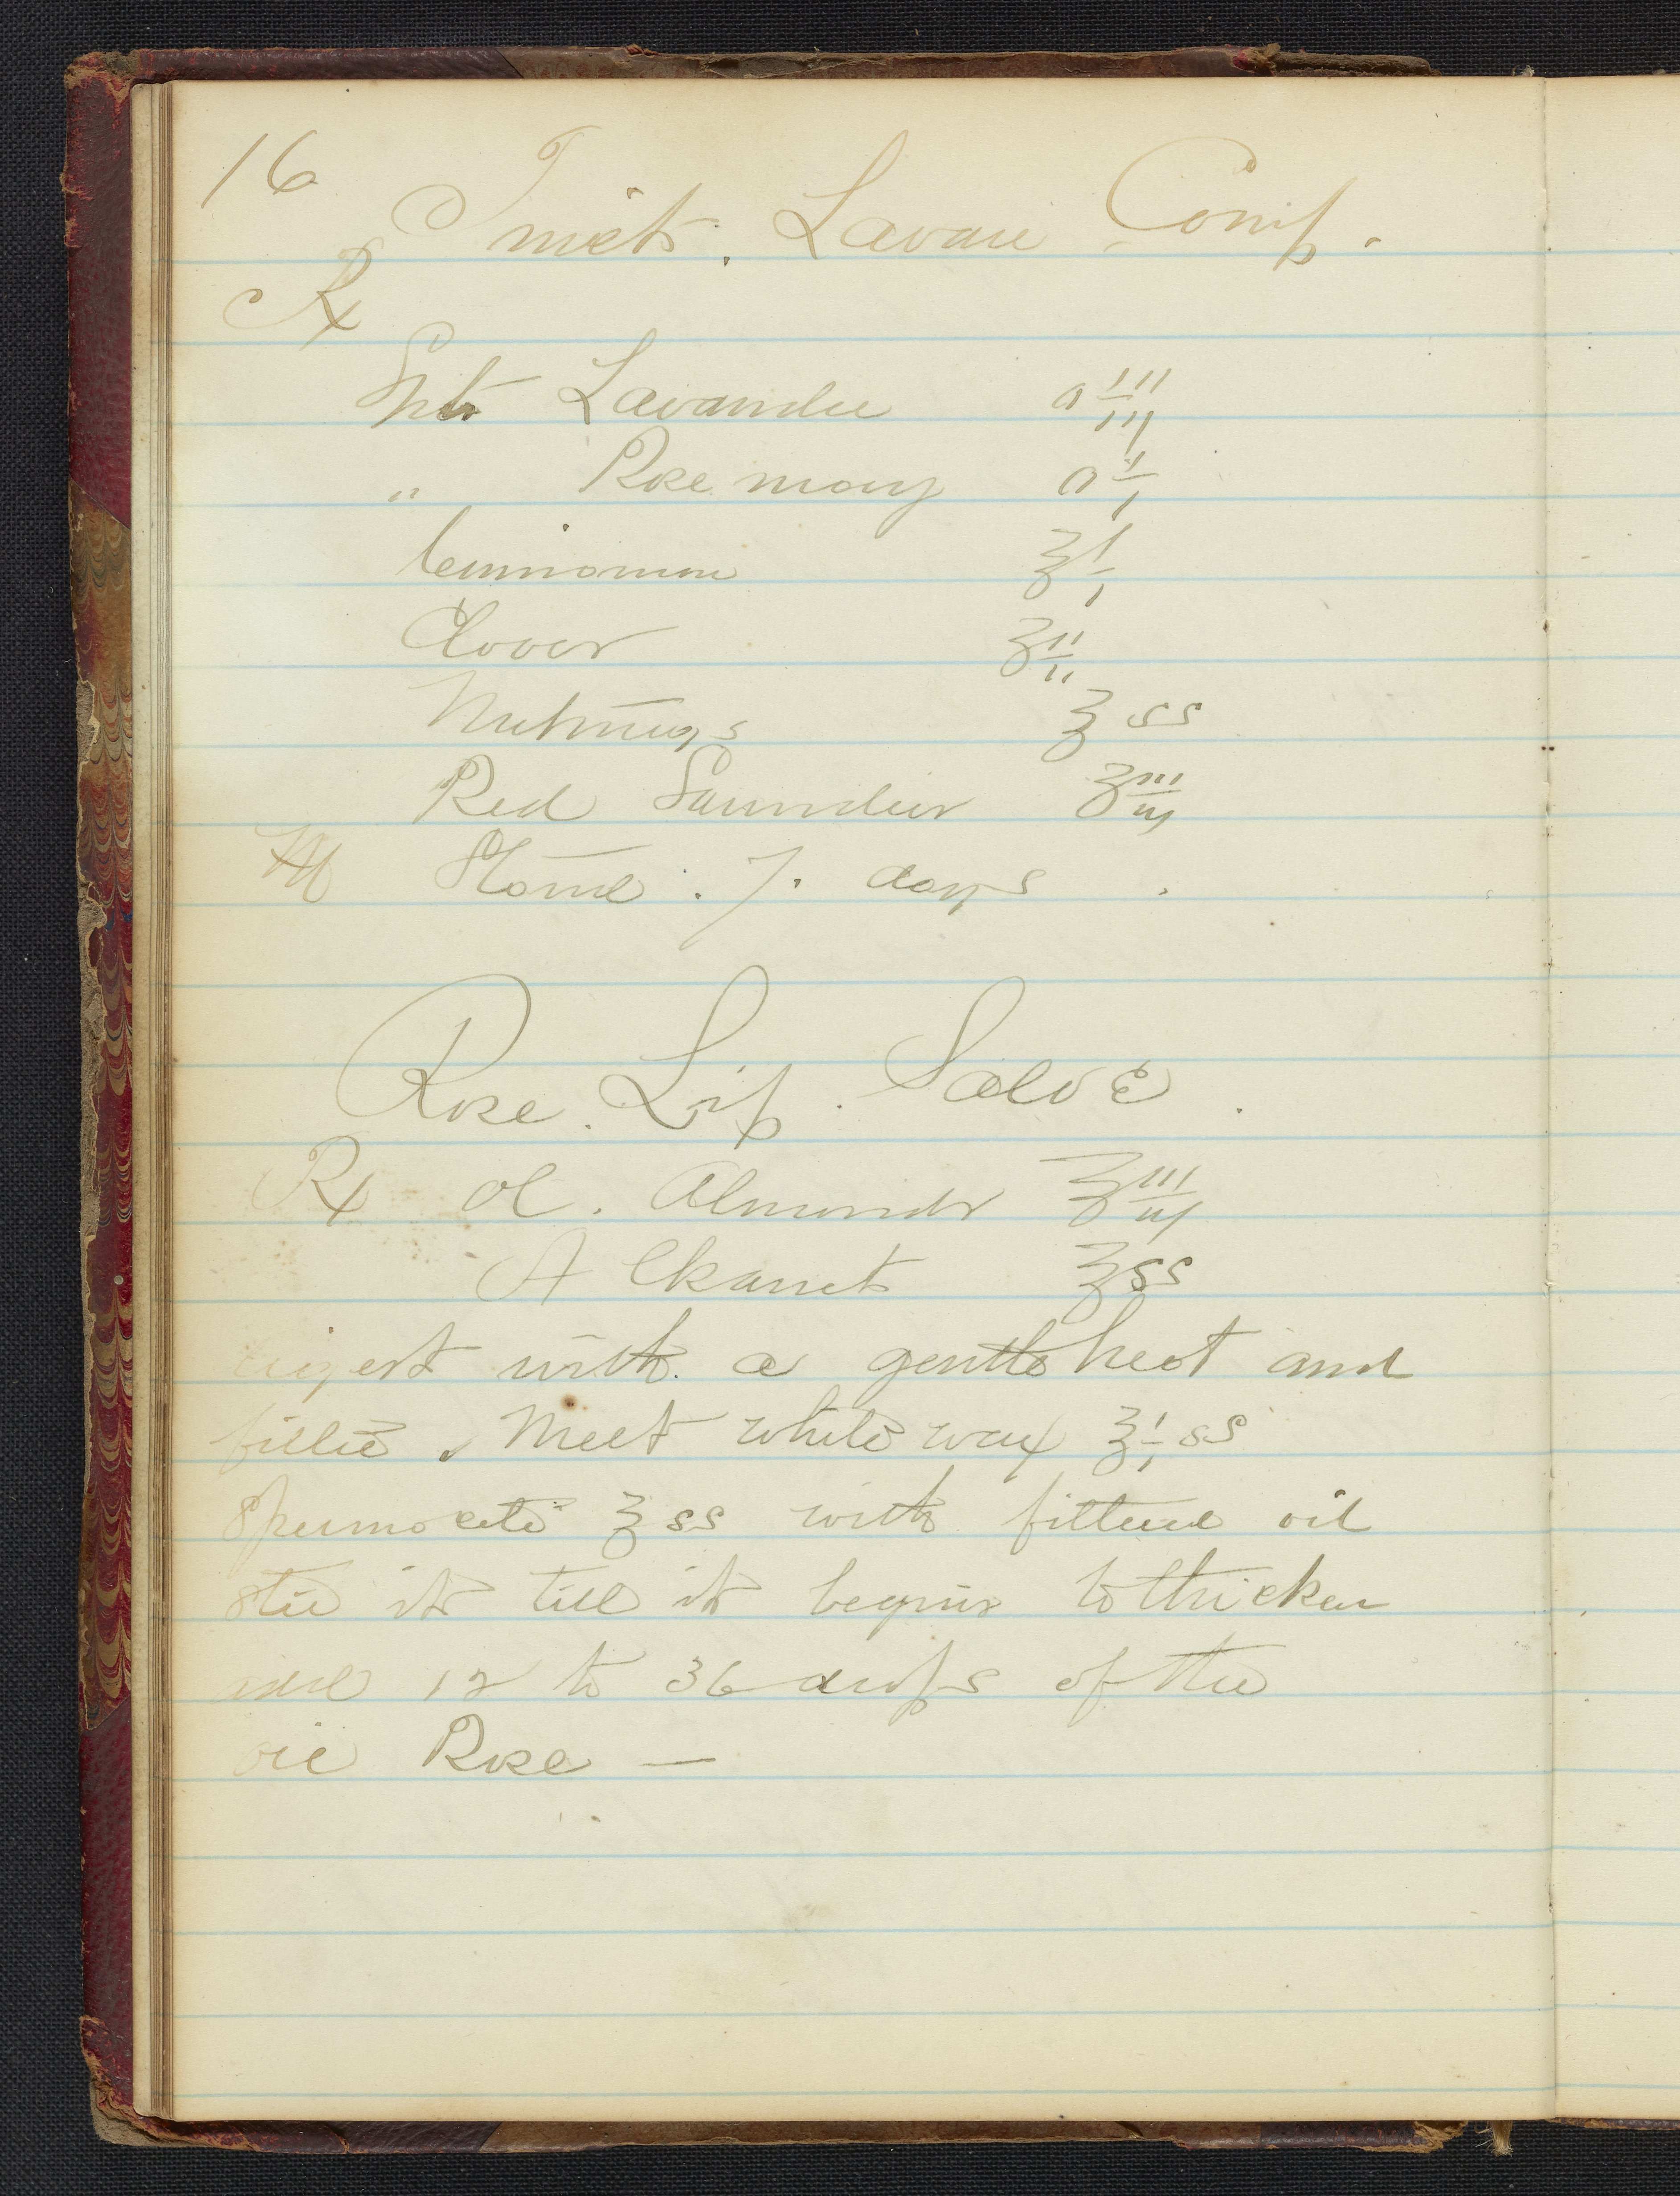 16
Tinct. Lavan Comp.
Rx
Spts Lavandu O iii
" Rosemary O i
Cinnomon ℥ i
Cloves ʒ ii
Nutmegs ℥ ss
Red Saunders ʒ iii
M Stand . 7. days .
Rose. Lip. Salve.
Rx Ol. Almonds ℥ iii
Alkanet ℥ ss
digest with a gentle heat and
filter. Melt white wax ℥ i ss
Spermaceti ℥ ss with filtered oil
stir it till it begins to thicken
add 12 to 36 drops of the
oil Rose —